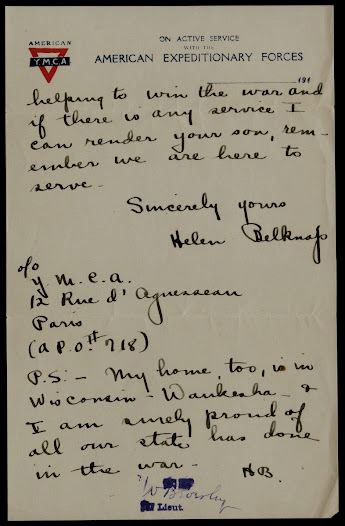 AMERICAN
Y.M.C.A
ON ACTIVE SERVICE
WITH THE
AMERICAN EXPEDITIONARY FORCES
191
helping to win the war and
if there is any service I
can render your son, rem-
ember we are here to
serve.
Sincerely yours
Helen Belknap
c/o
Y.M.C.A.
12 Rue d'Aguesseau
Paris
(A.P.O. # 718)
P.S. – My home, too, is in
Wisconsin – Waukesha – &
I am surely proud of
all our state has done
in the war – HB.
Lieut.